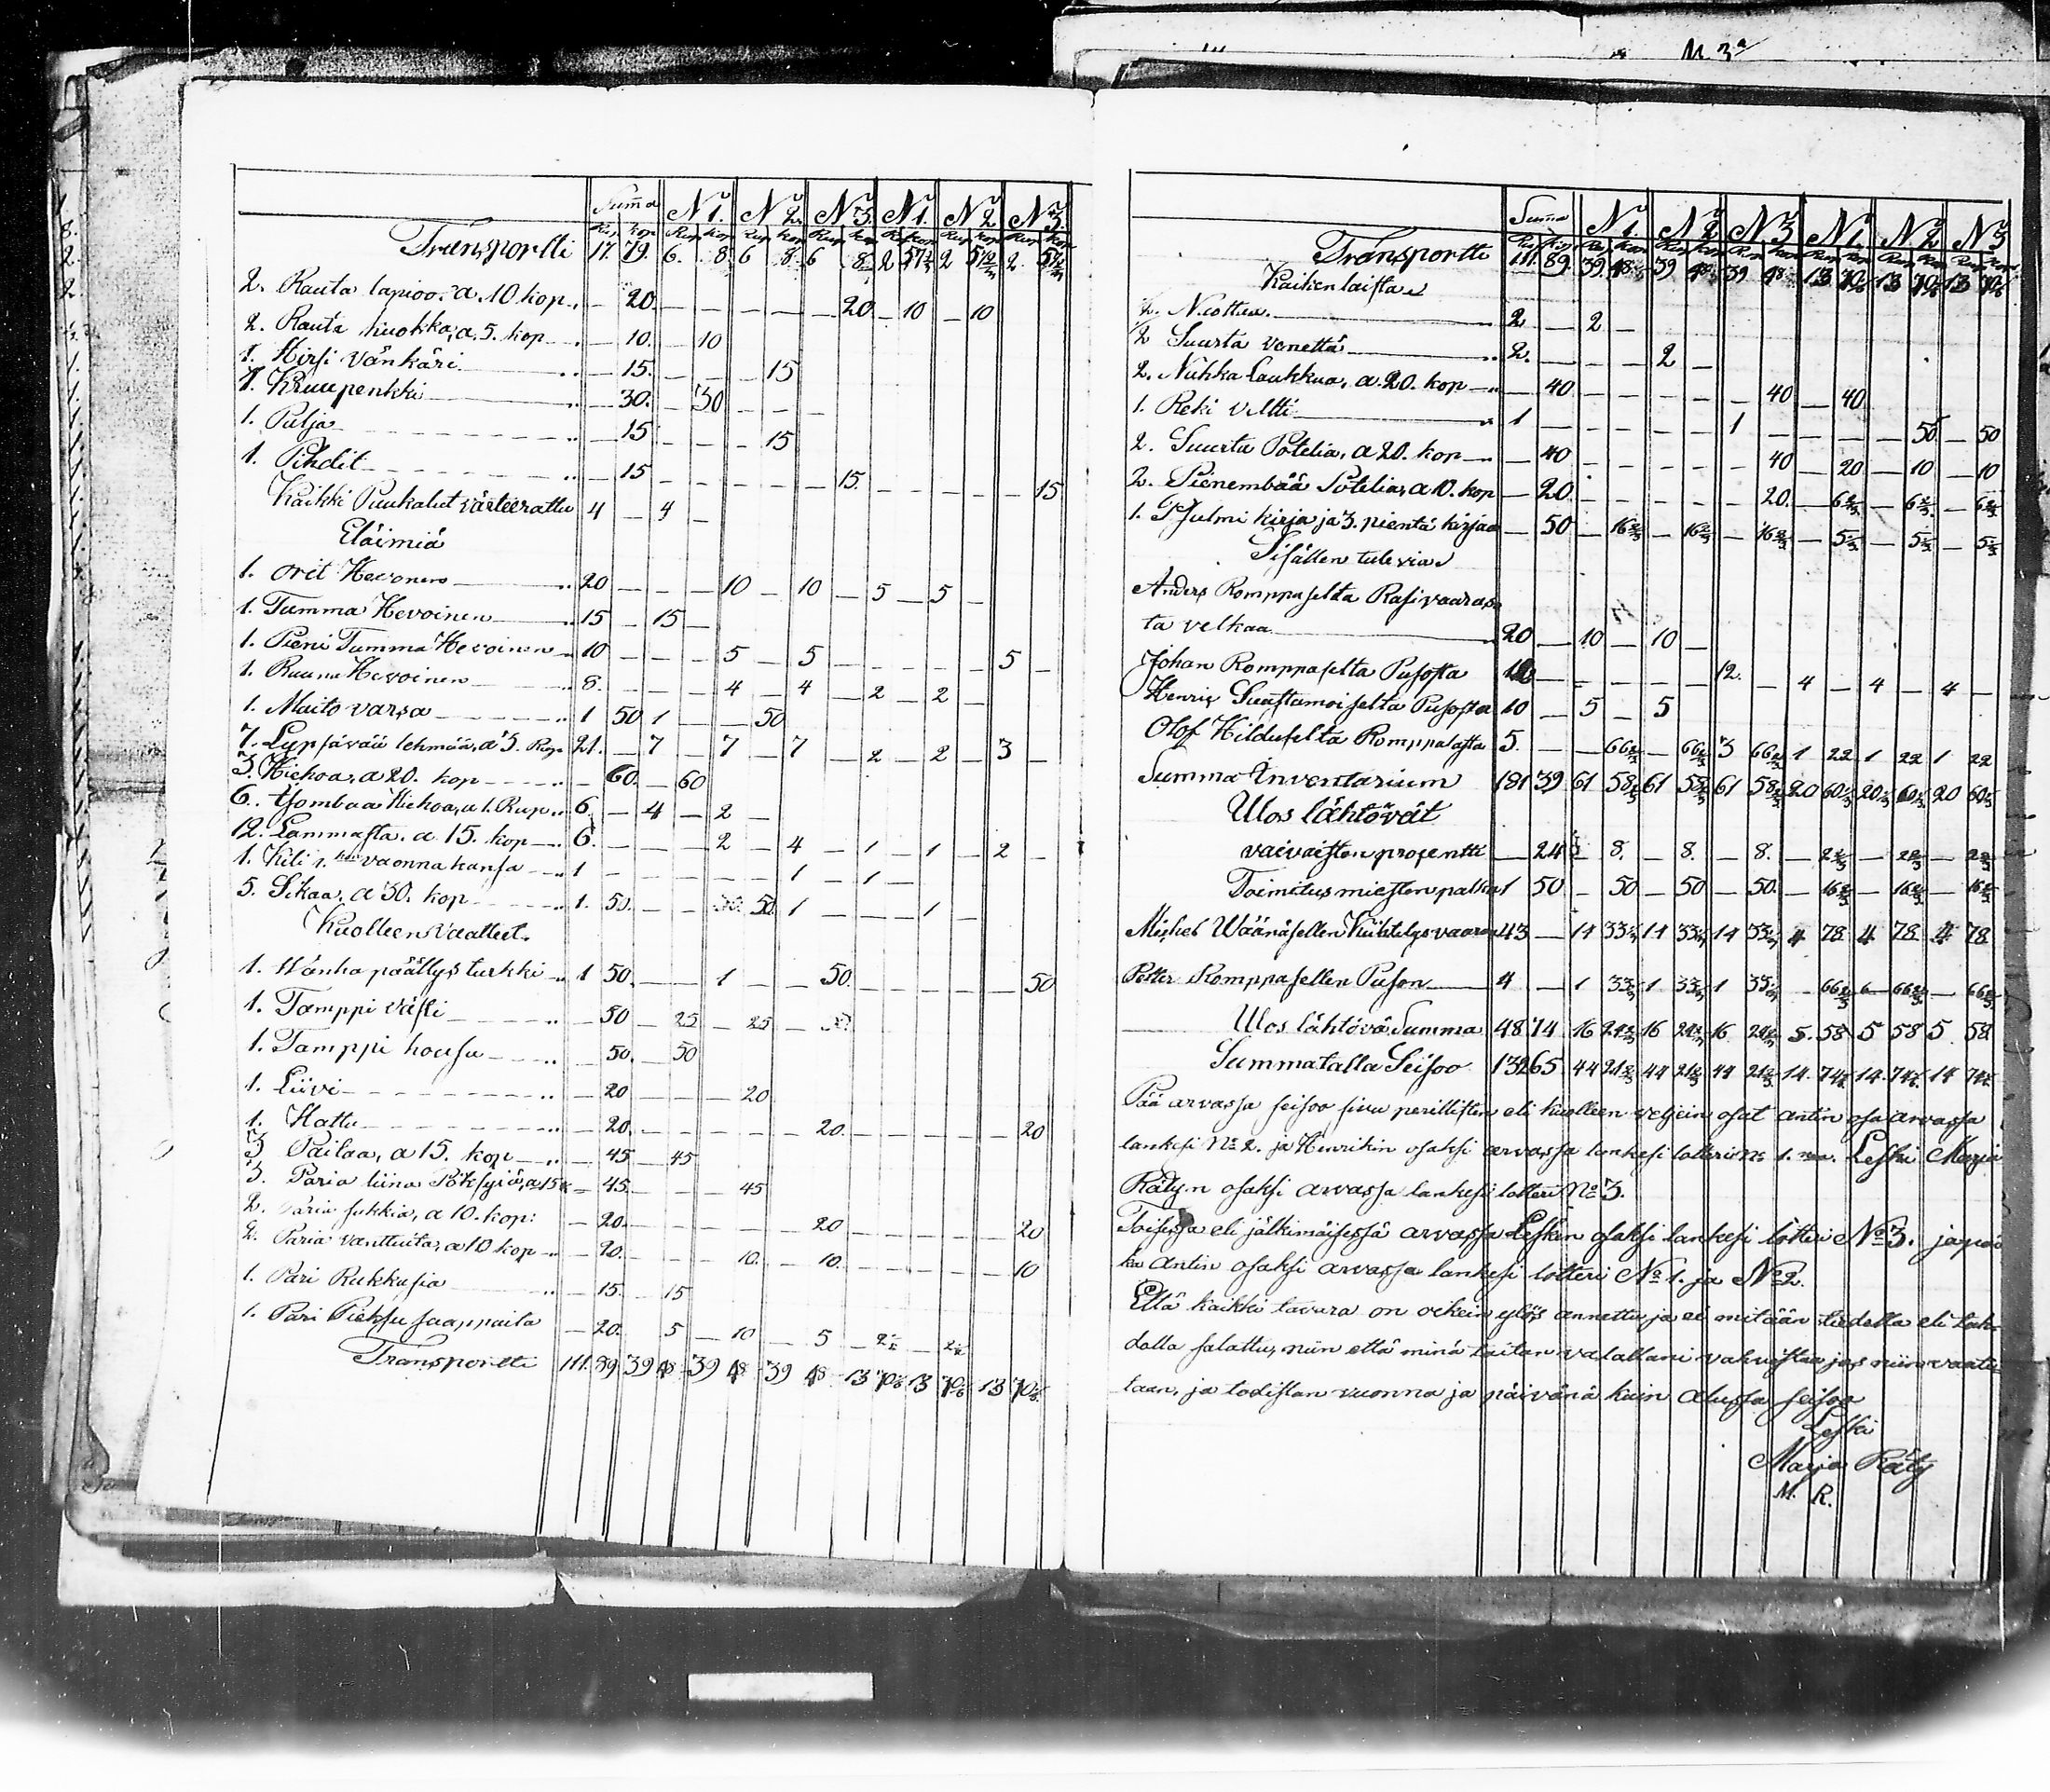 Summa N 1. N 2. N 3. N 1. N 2 N 3.
Rup. kop Rup kop Rup kop Rup kop Rup kop Rup kop Rup kop
Transportti 17. 79. 6. 8. 6 8. 6 8. 2 57 2/3 2 57 2/3 2. 57 2/3
2. Rauta lapioo. a. 10 kop. — 20. — — — — — 20 — 10 — 10
2. Rauta kuokka, a. 5. kop — 10. — 10
1. Hirsi vänkäri — 15. — — — 15
1. Kruupenkki — 30. — 30 — — —
1. Pulja — 15 — — — 15
1. Pihdit — 15 — — — — — 15. — — — — — 15
Kaikki Puukalut värteerattu 4 — 4 —
Eläimiä
1. Orit Hevonen 20 — — — 10 — 10 — 5 — 5 —
1. Tumma Hevoinen 15 — 15 —
1. Pieni Tumma Hevoinen 10 — — — 5 — 5 — — — — — 5 —
1. Ruuna Hevoinen 8. — — — 4 — 4 — 2 — 2 —
1. Maito varsa 1 50 1 — — 50
7. Lypsävää lehmää, a 3. Rup 21. — 7 — 7 — 7 — 2 — 2 — 3 —
3. Hiehoa, a 20. kop — 60. — 60
6. Hiehoa, a 1. Rup. 6 — 4 — 2 —
12. Lammasta. a 15. kop 6. — — — 2 — 4 — 1 — 1 — 2 —
1. Kili 1. vuonna kansa 1 — — — — — 1 — 1 —
5. Sikaa, a 30. kop 1. 50. — — — 50 1 — — — 1 —
Kuolleen Vaatteet.
1. Wanha päällys turkki 1 50. — — 1 — — 50. — — — — — 50
1. Tamppi västi — 50 — 25 — 25 —
1. Tamppi housu — 50. — 50
1. Liivi — 20 — — — 20
1. Hattu — 20. — — — — — 20. — — — — — 20
3 Paitaa, a 15. kop — 45 — 45
3. Paria liina Pöksyiä, a 15 k — 45. — — — 45
2. Paria sukkia, a 10. kop: — 20. — — — — — 20 — — — — — 20
2. Paria vanttuita, a 10 kop — 20. — — — 10. — 10. — — — — — 10
1. Pari Rukkasia — 15. — 15
1. Pari Pieksu saappaita — 20. — 5 — 10 — 5 — 2 1/2 — 2 1/2
Transportti 111. 89 39 48 39 48 39 48 13 70 13 70 13 70
Summa N 1 N 2 N 3 N 1. N 2 N 3
Transportti 111. 89. 39. 48 39 48 39 48 13 70 13 70 13 70
Kaikenlaista
2. Nuottaa 2 — 2 —
2 Suurta venettä 2. — — — 2 —
2. Nahka Laukkua, a. 20. kop — 40 — — — — — 40 — 40
1. Reki veltti 1 — — — — — 1 — — — — 50 — 50
2. Suurta Potelia, a 20. kop — 40 — — — — — 40 — 20 — 10 — 10
2. Pienembää Potelia, a 10. kop — 20. — — — — — 20. — 6 2/3 — 6 2/3 — 6 2/3
1. Psulmi kirja ja 3. pientä kirjaa — 50 — 16 2/3 — 16 2/3 — 16 2/3 — 5 — 5 — 5
Sisällen tulevia
Anders Romppaselta Rasivaaras
ta velkaa 20 — 10 — 10 —
Johan Romppaselta Pusosta 12 — — — — — 12. — 4 — 4 — 4 —
Henrik Suastamoiselta Pusosta 10 — 5 — 5
Olof Hildeselta Romppalasta 5. — — 66 2/3 — 66 2/3 3 66 2/3 1 22 1 22 1 22
Summa Inventarium 181 39 61 58 61 58 61 58 20 60 20 60 20 60
Ulos lähtövät
vaivaisten prosentti — 24 — 8. — 8. — 8. — 2 2/3 — 2 2/3 — 2 2/3
Toimitus miesten palka 1 50 — 50 — 50 — 50. — 16 2/3 — 16 2/3 — 16 2/3
Mickel Wäänäsellen Kiihtelysvaaran 43 — 14 33 14 33 14 33 4 78 4 78 4 78
Petter Romppasellen Puson 4 — 1 33 1 33 1 33 — 66 2/3 — 66 2/3 — 66 2/3
Ulos lähtövä Summa 48 74 16 24 16 24 16 24 5. 58 5 58 5 58
Summatalla Seisoo 132 65 44 21 44 21 44 21 14. 74 14. 74 14 74
Pää arvassa seisoo sisu perillisten eli kuolleen veljein osat Antin osa arvassa
lankesi No 2. ja Henrikin osaksi arvassa lankesi lotteri No 1. Leski Marja
Rätyn osaksi arvassa lankesi lotteri No 3.
Toisessa eli jälkimäisessä arvassa Lesken osaksi lankesi lotteri No 3. ja poi
ka Antin osaksi arvassa lankesi lotteri No 1. ja No 2.
Että kaikki tavara on oikein ylös annettu ja ei mitään tiedolla eli tah-
dolla salattu, niin että minä taitan valallani vahvistaa jos niin vaadi
taan, ja todistan vuonna ja päivänä kuin alussa seisoo
Leski
Marja Räty
M. R.